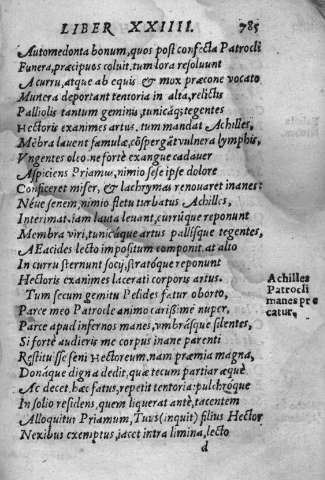 LIBER XXIIII. 785
Automedonta bonum, quos post confecta Patrocli
Funera, præcipuos coluit. tum lora resoluunt
A curru, atque ab equis & mox præcone vocato
Munera deportant tentoria in alta, relictis
Palliolis tantum geminis, tunicáq; tegentes
Hectoris exanimes artus. tum mandat Achilles,
Mẽbra lauent famulæ, cõspergãt vulnera lymphis,
Vngentes oleo. ne fortè exangue cadauer
Aspiciens Priamus, nimio sese ipse dolore
Conficeret miser, & lachrymas renouaret inanes:
Néue senem, nimio fletu turbatus Achilles,
Interimat. iam lauta leuant, currúque reponunt
Membra viri, tunicáque artus pallísque tegentes,
AEacides lecto impositum componit. at alto
In curru sternunt socij, stratóque reponunt
Hectoris exanimes lacerati corporis artus.
Tum secum gemitu Pelides fatur oborto,
Parce meo Patrocle animo carissime nuper,
Parce apud infernos manes, vmbrásque silentes,
Si fortè audieris me corpus inane parenti
Restituisse seni Hectoreum, nam præmia magna,
Donáque digna dedit, quæ tecum partiar æquè
Ac decet. hæc fatus, repetit tentoria: pulchróque
In solio residens, quem liquerat antè, tacentem
Alloquitur Priamum, Tuus (inquit) filius Hector
Nexibus exemptus, iacet intra limina, lecto
d
Achilles
Patrocli
manes pre
catur.